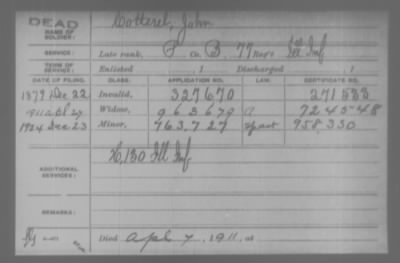 DEAD
NAME OF SOLDIER: Cotterel, John
SERVICE: Late rank, P Co. B, 77 Reg't Ill Inf
TERM OF SERVICE: Enlisted , 1 Discharged , 1
DATE OF FILING. CLASS. APPLICATION NO. LAW. CERTIFICATE NO.
1879 Dec 22 Invalid, 327670 271533
1911 Apl 27 Widow, 963679 724548
1924 Dec 23 Minor, 763727 958330
ADDITIONAL SERVICES: K, 130 Ill Inf
REMARKS:
Died Apl 7, 1911, at